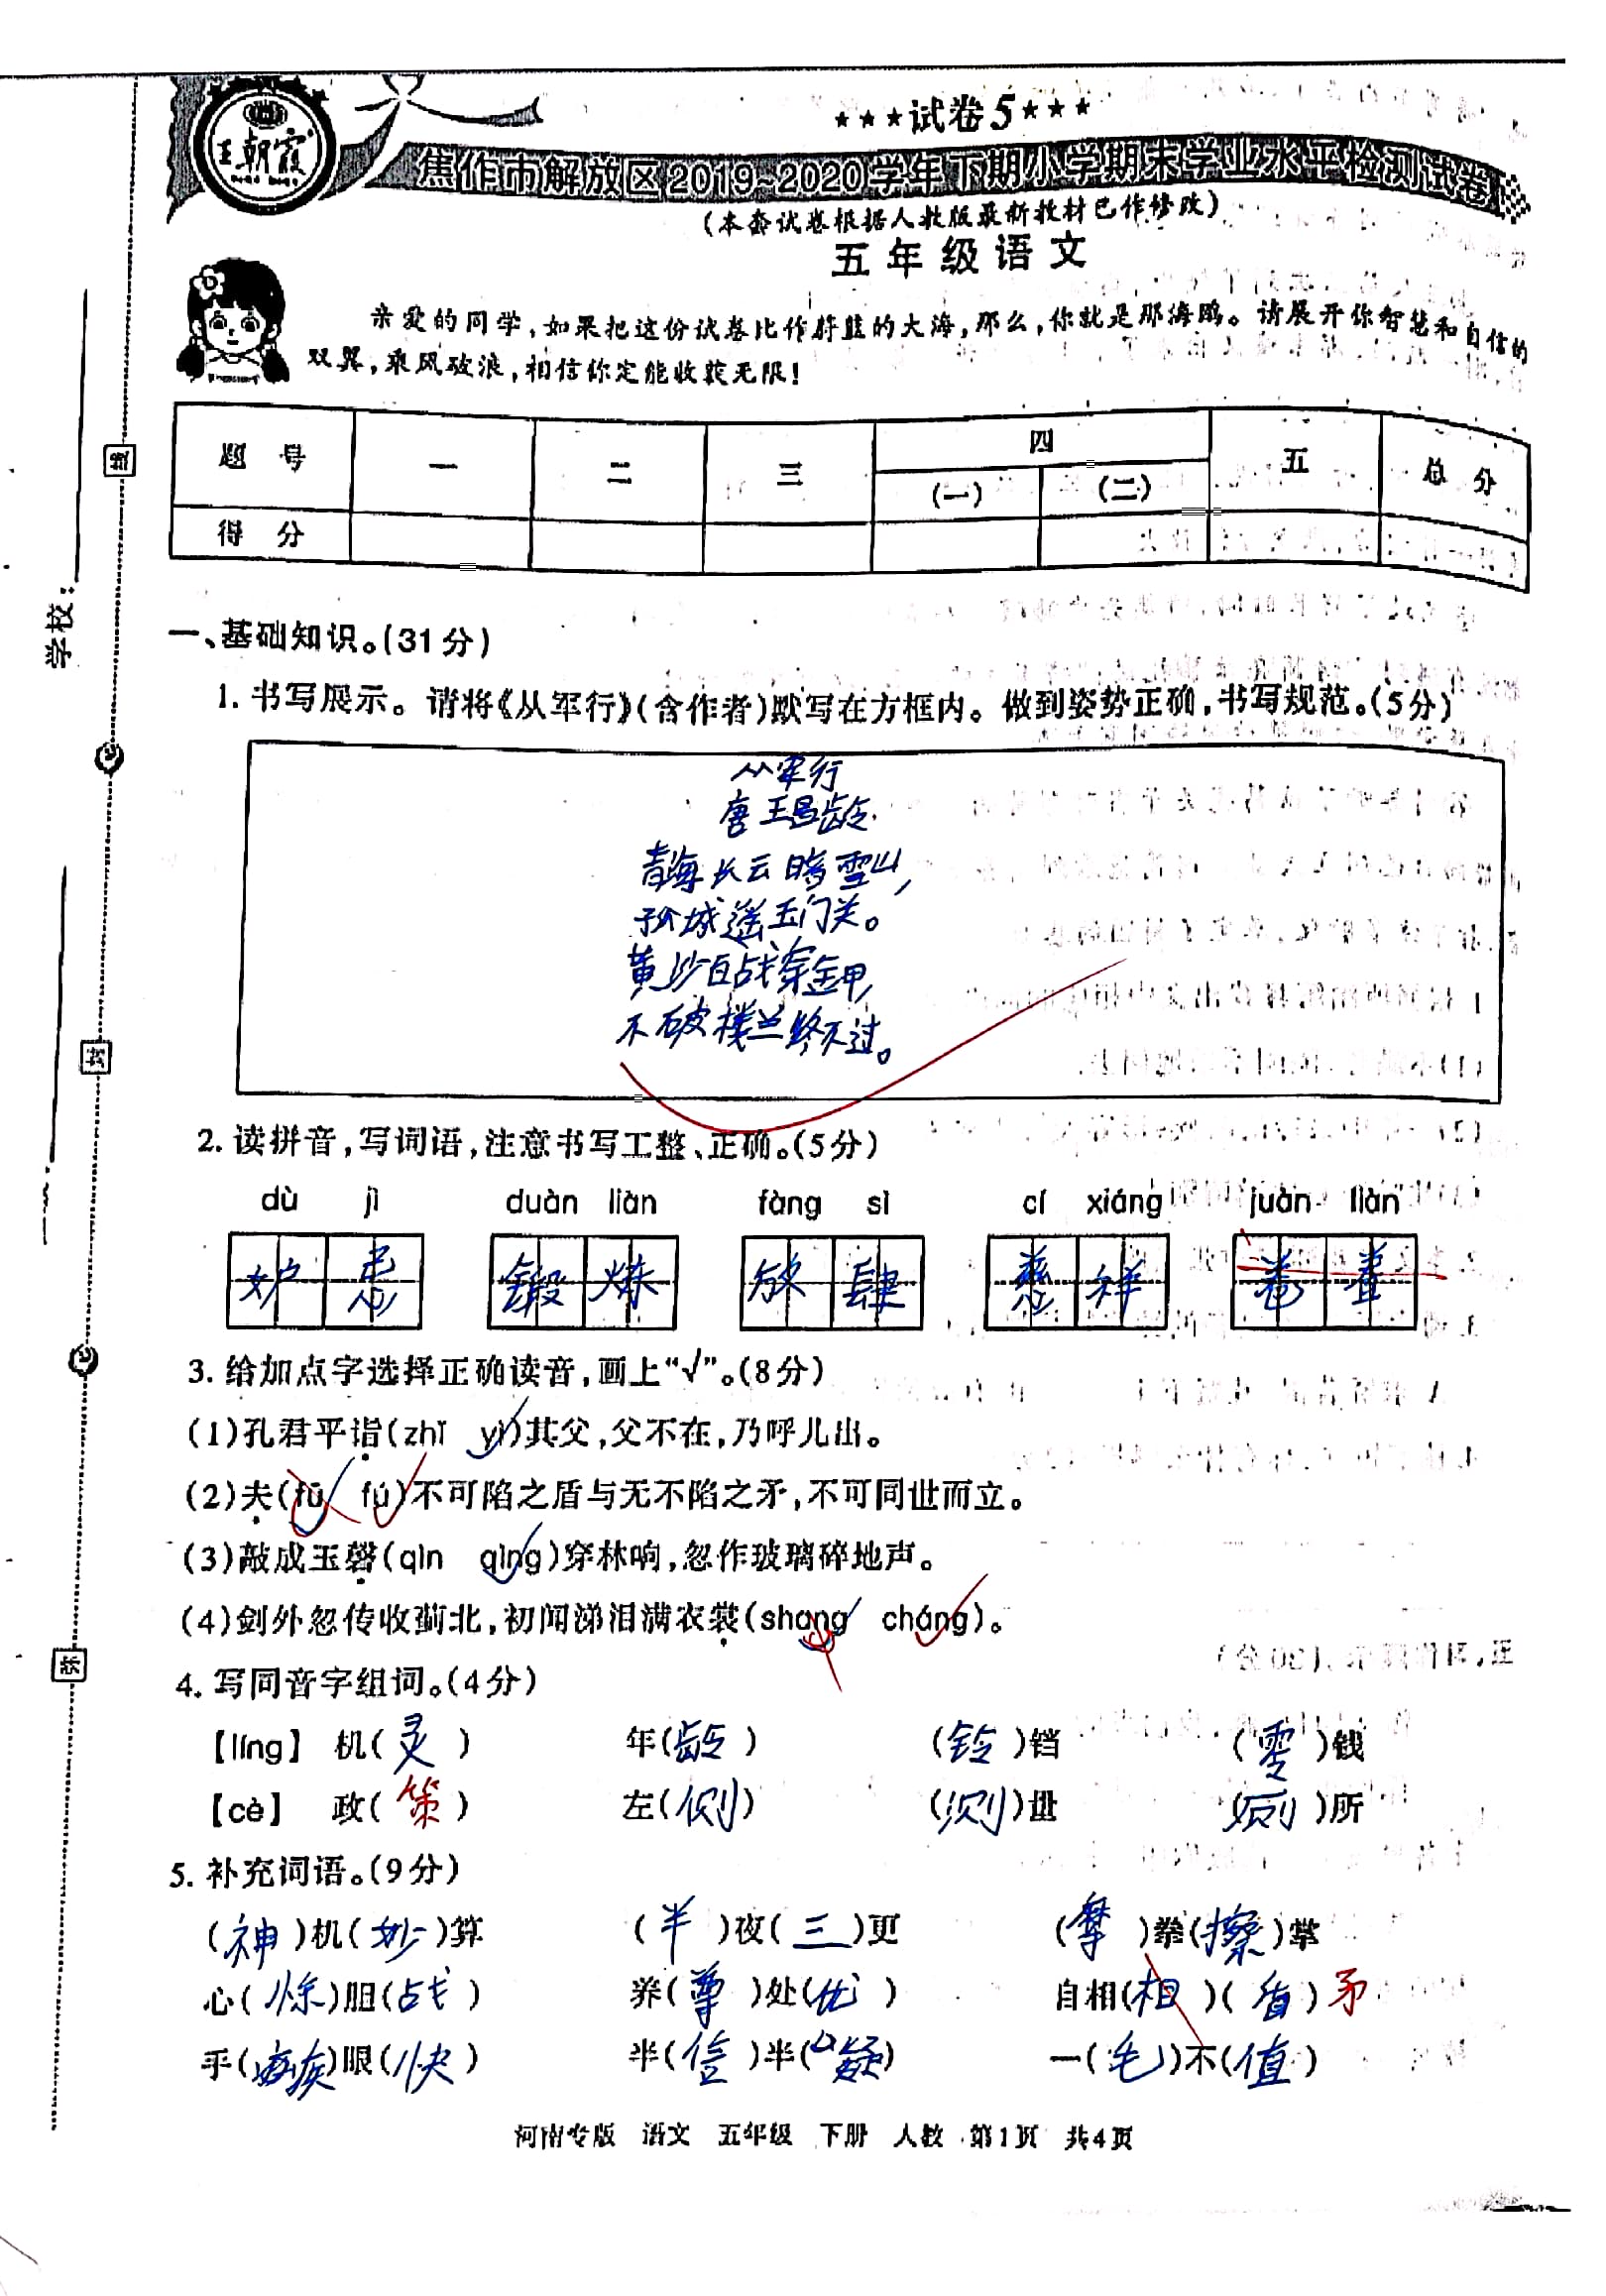 王朝霞
★★★试卷5★★★
焦作市解放区2019~2020学年下期小学期末学业水平检测试卷
(本套试卷根据人教版最新教材已作修改)
五年级语文
亲爱的同学,如果把这份试卷比作蔚蓝的大海,那么,你就是那海鸥。请展开你智慧和自信的
双翼,乘风破浪,相信你定能收获无限!
题号 一 二 三 四 五 总分
(一) (二)
得分
学校:
一、基础知识。(31分)
1. 书写展示。请将《从军行》(含作者)默写在方框内。做到姿势正确,书写规范。(5分)
从军行
唐 王昌龄
青海长云暗雪山,
孤城遥玉门关。
黄沙百战穿金甲,
不破楼兰终不过。
2. 读拼音,写词语,注意书写工整、正确。(5分)
dù jì duàn liàn fàng sì cí xiáng juàn liàn
妒忌 锻炼 放肆 慈祥 卷
3. 给加点字选择正确读音,画上“√”。(8分)
(1)孔君平诣(zhǐ yì√)其父,父不在,乃呼儿出。
(2)夫(fū√ fú√)不可陷之盾与无不陷之矛,不可同世而立。
(3)敲成玉磬(qìn qìng√)穿林响,忽作玻璃碎地声。
(4)剑外忽传收蓟北,初闻涕泪满衣裳(shang√ cháng√)。
4. 写同音字组词。(4分)
【líng】 机(灵) 年(龄) (铃)铛 (零)钱
【cè】 政(策) 左(侧) (测)量 (厕)所
5. 补充词语。(9分)
(神)机(妙)算 (半)夜(三)更 (摩)拳(擦)掌
心(惊)胆(战) 养(尊)处(优) 自相(相)(盾)矛
手(疾)眼(快) 半(信)半(疑) 一(毛)不(值)
河南专版 语文 五年级 下册 人教 第1页 共4页
线
封
密